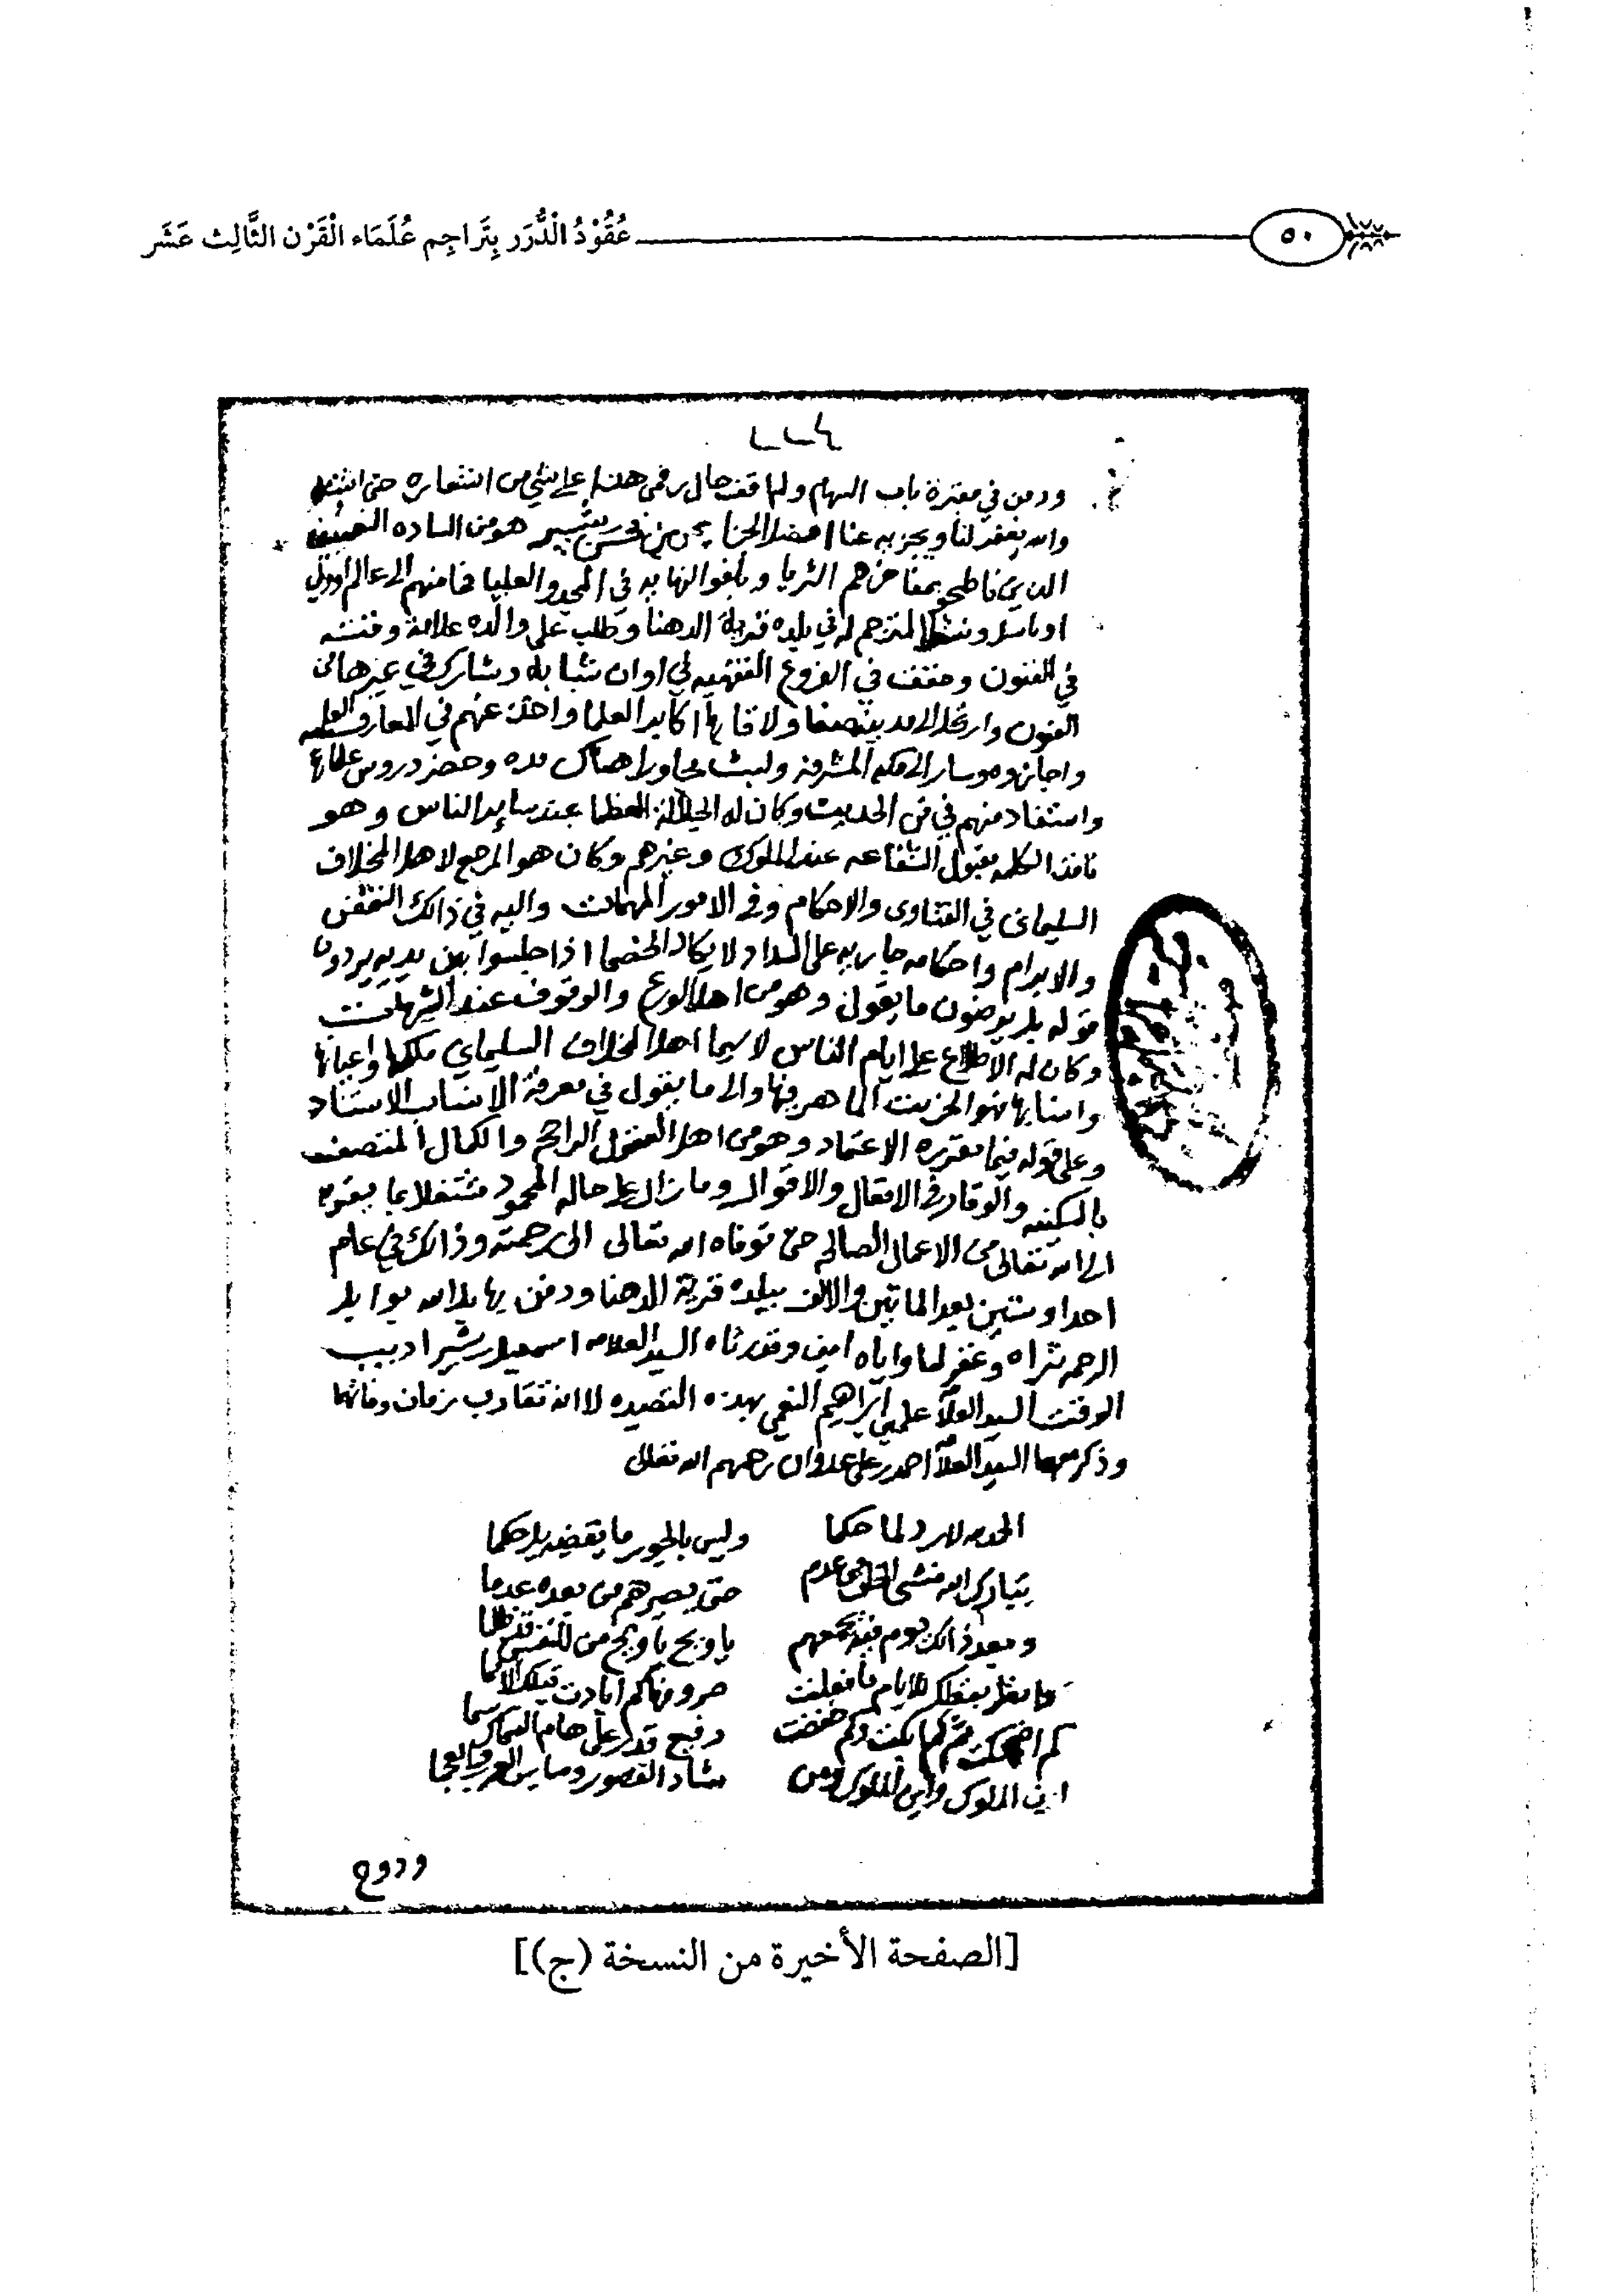 ٥٠
عُقُوْدُ الْدُّرَر بِتَراجِم عُلَمَاء الْقَرْن الثَّالِث عَشَر
ودفن في مقبرة باب السهام ولم اقف حال رقمي هذا على شي من اشعاره حتى اثبته
والله يغفر لنا ويجزيه عنا افضل الجزا هو من الساده
الذين ناطحو بمفاخرهم الثريا وبلغوا النهايه في المجد والعليا فما منهم الا عالم او ولي
المترجم له في بلده قرية الدهنا وطلب على والده علامة وقته
في الفنون وحقق في الفروع الفقهيه في اوان شبابه وشارك في غيرها من
الفنون وارتحل الا مدينة صنعا ولاقا بها اكابر العلما واخذ عنهم في المعارف العلميه
واجازوه وسار الا مكه المشرفة ولبث مجاورا هناك مده وحضر دروس علمائها
واستفاد منهم في فن الحديث وكان له الجلالة العظما عند ساير الناس وهو
نافذ الكلمه مقبول الشفاعه عند الملوك وغيرهم وكان هو المرجع لاهل المخلاف
السليماني في الفتاوى والاحكام وفي الامور المهمات واليه في ذالك النقض
والابرام واحكامه جاريه على السداد لا يكاد الخصما اذا جلسوا بين يديه يردون
قوله بل يرضون ما يقول وهو من اهل الورع والوقوف عند الشبهات
وكان له الاطلاع على ايام الناس لا سيما اهل المخلاف السليماني ملكها واعيانها
وانسابها فهو الخريت الماهر فيها والى ما يقول في معرفة الانساب الاستناد
وعلى قوله فيما يقرره الاعتماد وهو من اهل العقول الراجح والكمال المتصف
بالسكينه والوقار في الافعال والاقوال وما زال على حاله المحمود مشتغلا بما يقربه
الى الله تعالى من الاعمال الصالح حتى توفاه الله تعالى الى رحمته وذالك في عام
احدا وستين بعد الماتين والالف ببلده قرية الدهنا ودفن بها بل الله بوابل
الرحمه ثراه وغفر لنا واياه امين وقد رثاه السيد العلامه اسمعيل بشير اديب
الوقت السيد العلا علي بن ابراهيم النعمي بهذه القصيده لا انه تقارب زمان وفاتهما
وذكر معهما السيد العلا احمد بن علي عدوان رحمهم الله تعالى
الحمد لله لا رد لما حكما وليس بالجور ما يقضيه بل حكما
تبارك الله منشي الخلق من عدم حتى يصيرهم من بعده عدما
وبعد ذالك يوم فيه يجمعهم يا ويح يا ويح من للنفس قد ظلما
صروفها كم ابادت قبلك
كم اضحكت ثم كم ابكت وكم خفضت رفيع قدر على هام السماك سما
اين الملوك وابن الملوك ومن شاد القصور وساس العرب والعجما
ودوح
[الصفحة الأخيرة من النسخة (ج)]